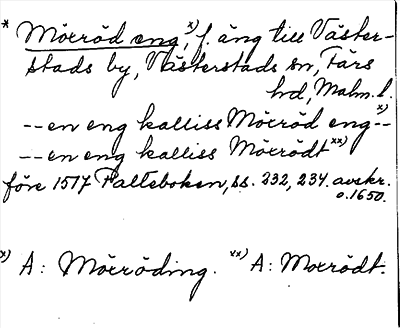 * Mörröd eng,x) f. äng till Väster-
stads by, Västerstads sn, Färs
hd, Malm. l.
-- en eng kalliss Mörröd eng x) --
-- en eng kalliss Mörrödt xx)
före 1517 Palteboken, ss. 232, 234. avskr.
o. 1650.
x) A: Mörröding. xx) A: Morrödt.